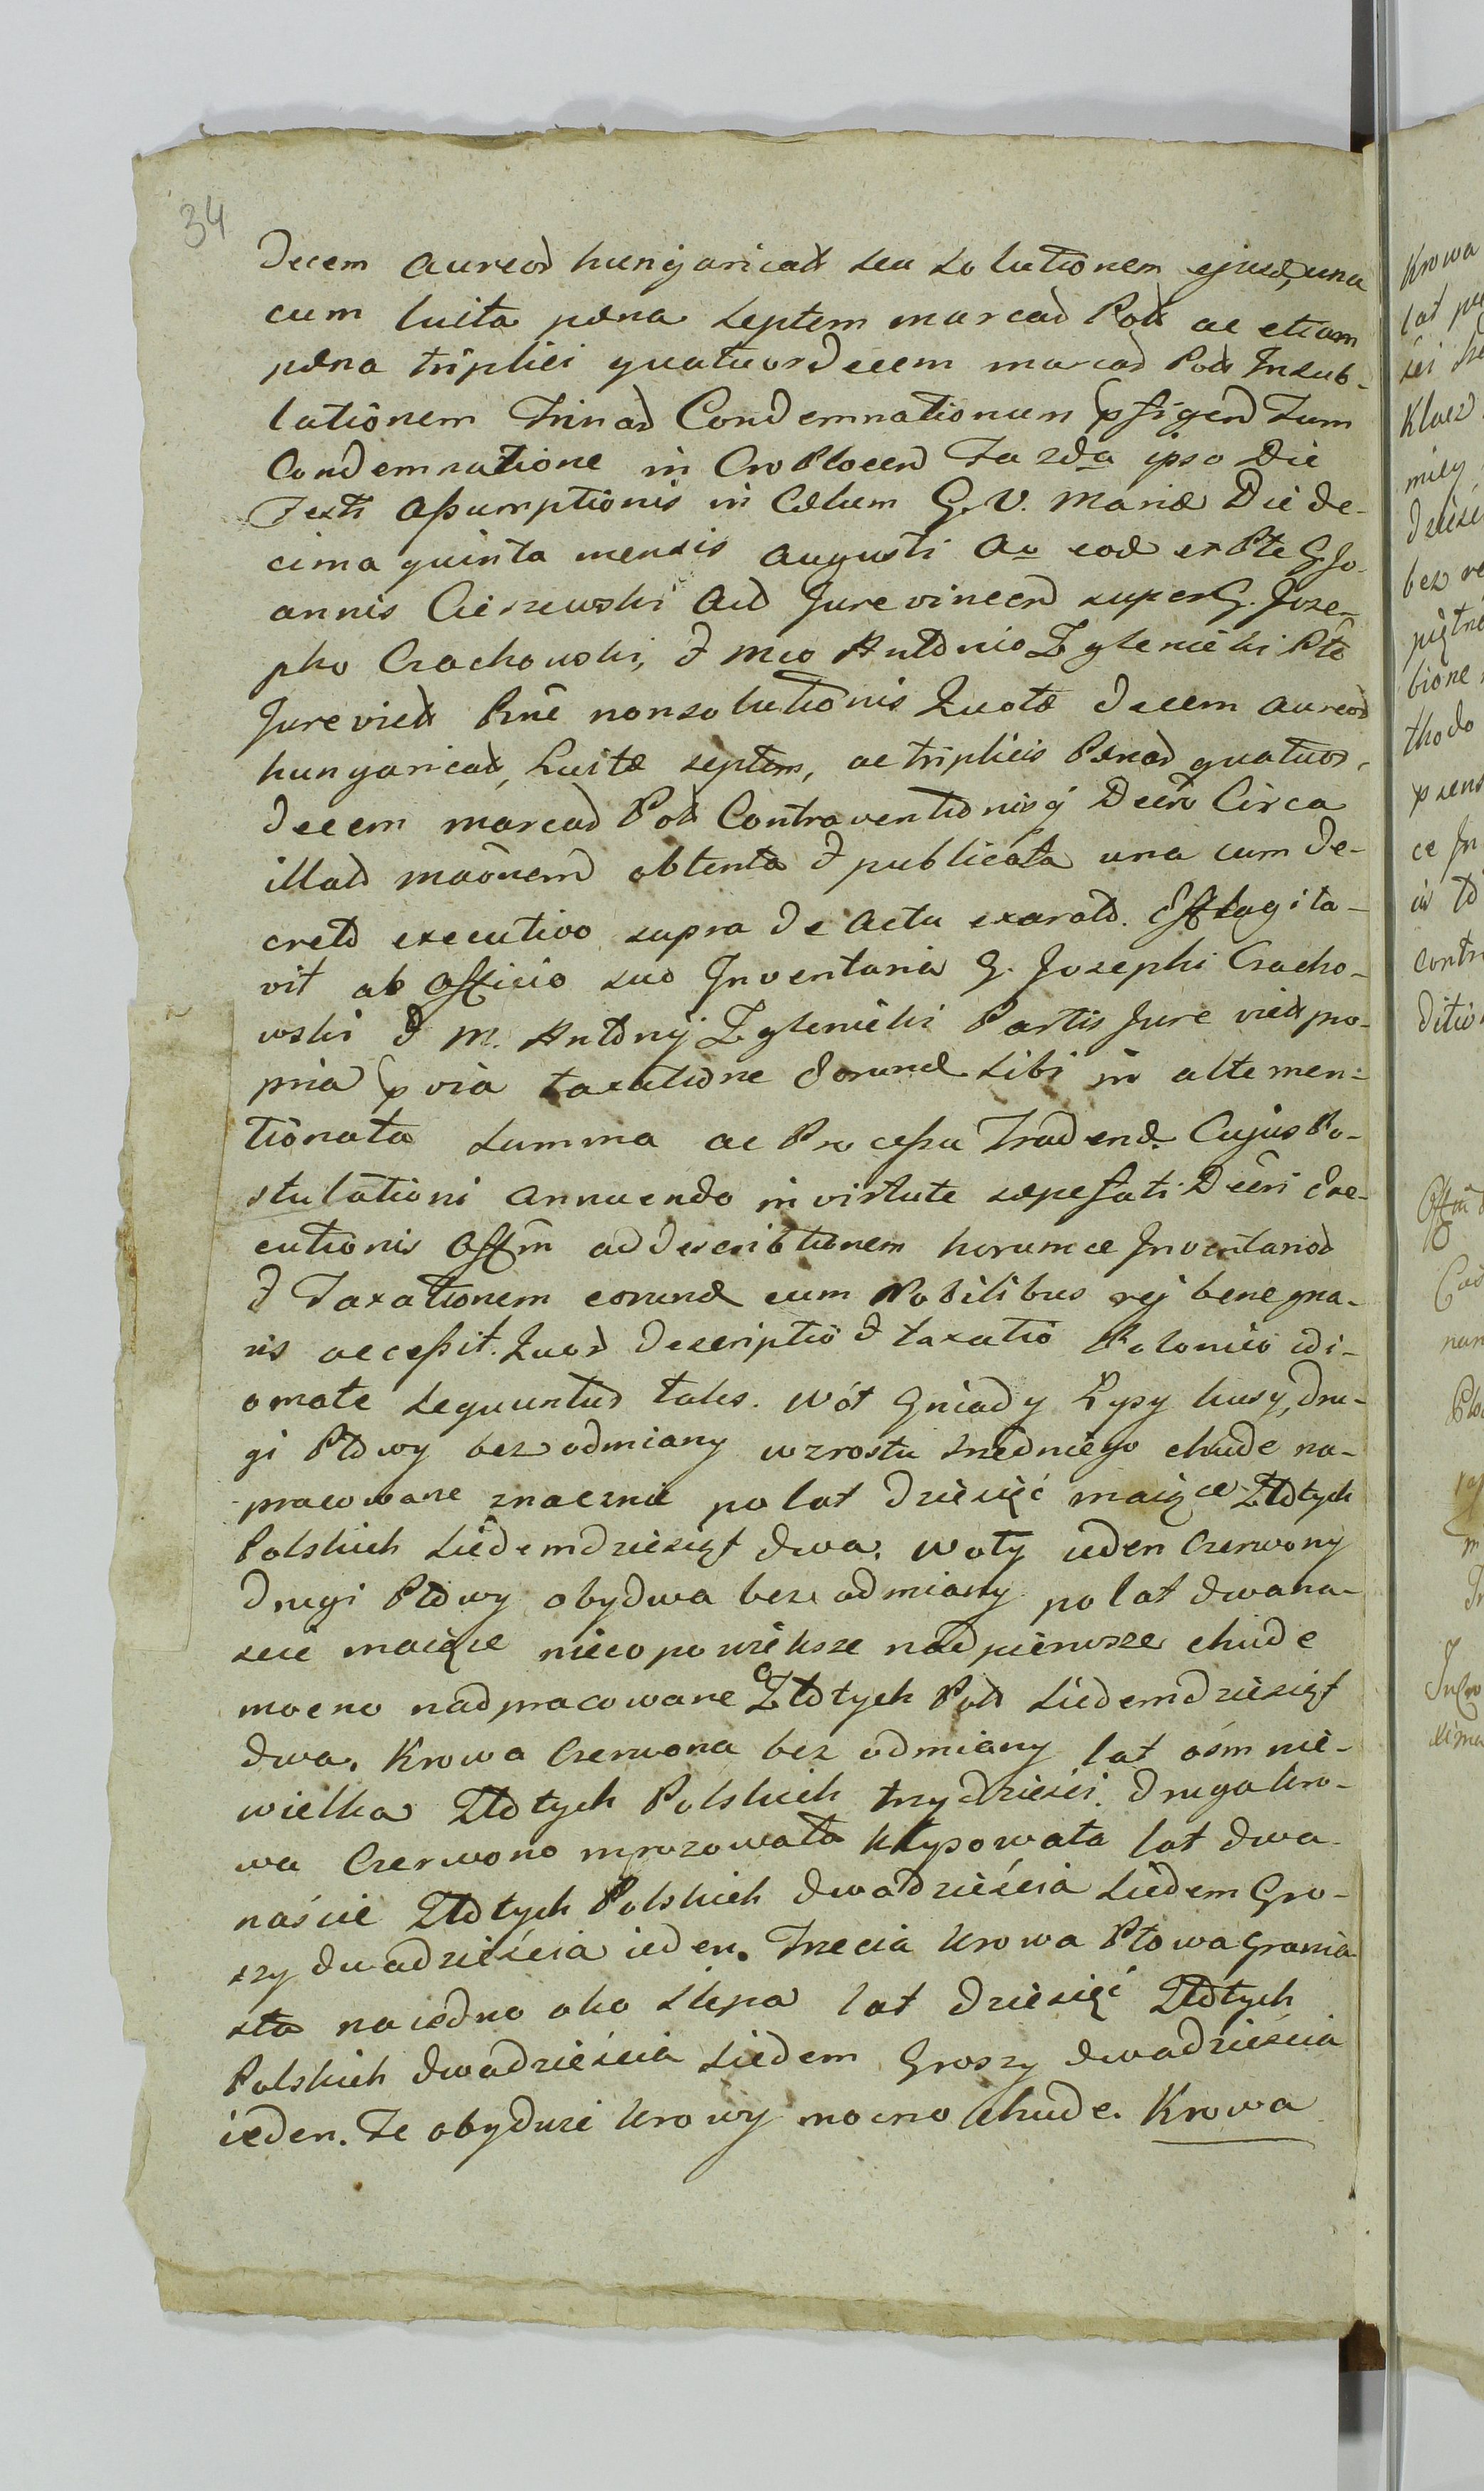 34
decem aureor hungarical seu solutionem ejusd, una
cum luita pæna septem marcar Pol ac etiam
pæna triplici quatuordecem marcar Pol Insub-
lationem Trinar Condemnationum pfigend tum
Condemnatione in Cro Plocen Fa 2da ipso Die
Festi Assumptionis in Cælum G. V. Mariæ Die de-
cima quinta mensis Augusti Ao eod ex Pte G Jo-
annis Cieszewski Act Jurevincen super G. Joze-
pho Czachowski, & Mco Antonio Zglenicki Pte
Jurevict Rne nonsolutionis Quotæ decem aureor
hungarical, Luitæ septem, ac triplicis Pænar quatuor-
decem marcar Pol Contraventionisq Decro Circa
illar maonem obtenta & publicata una cum de-
creto executivo supra de Actu exarato. Efflagita-
vit ab Officio suo Inventaria G. Josephi Czacho-
wski & M. Antonij Zglenicki Partis Jure vict pro-
pria p via taxatione Eorund sibi in alte men-
tionata summa ac Processu Tradend. Cujus Po-
stulationi annuendo in virtute sæpefati Decri Exe-
cutionis Offm ad descriptionem horumce Inventarior
& Taxationem eorund cum Nobilibus rej bene gna-
ris accessit. Quor descriptio & taxatio Polonico idi-
omate sequuntur tales. Wół Gniady Łysy kusy, dru-
gi Płowy bez odmiany wzrostu średniego chude na-
pracowane znacznie po lat dziesięć maiące Złotych
Polskich siedemdziesiąt dwa. Woły ieden Czerwony
drugi Płowy obydwa bez odmiany po lat dwana-
ście maiące nieco powiększe nad pierwsze chude
mocno nadpracowane Złotych Pol siedemdziesiąt
dwa. Krowa Czerwona bez odmiany lat ośm nie-
wielka Złotych Polskich trzydzieści. druga kro-
wa Czerwono mrozowata kłysowata lat dwa-
naście Złotych Polskich dwadzieścia siedem Gro-
szy dwadzieścia ieden. Trzecia krowa Płowa Grania
sta na iedno oko slepa lat dziesięć Złotych
Polskich dwadzieścia siedem Groszy dwadzieścia
ieden. Te obydwie krowy mocno chude. Krowa
Krowa
lat
bez
contr